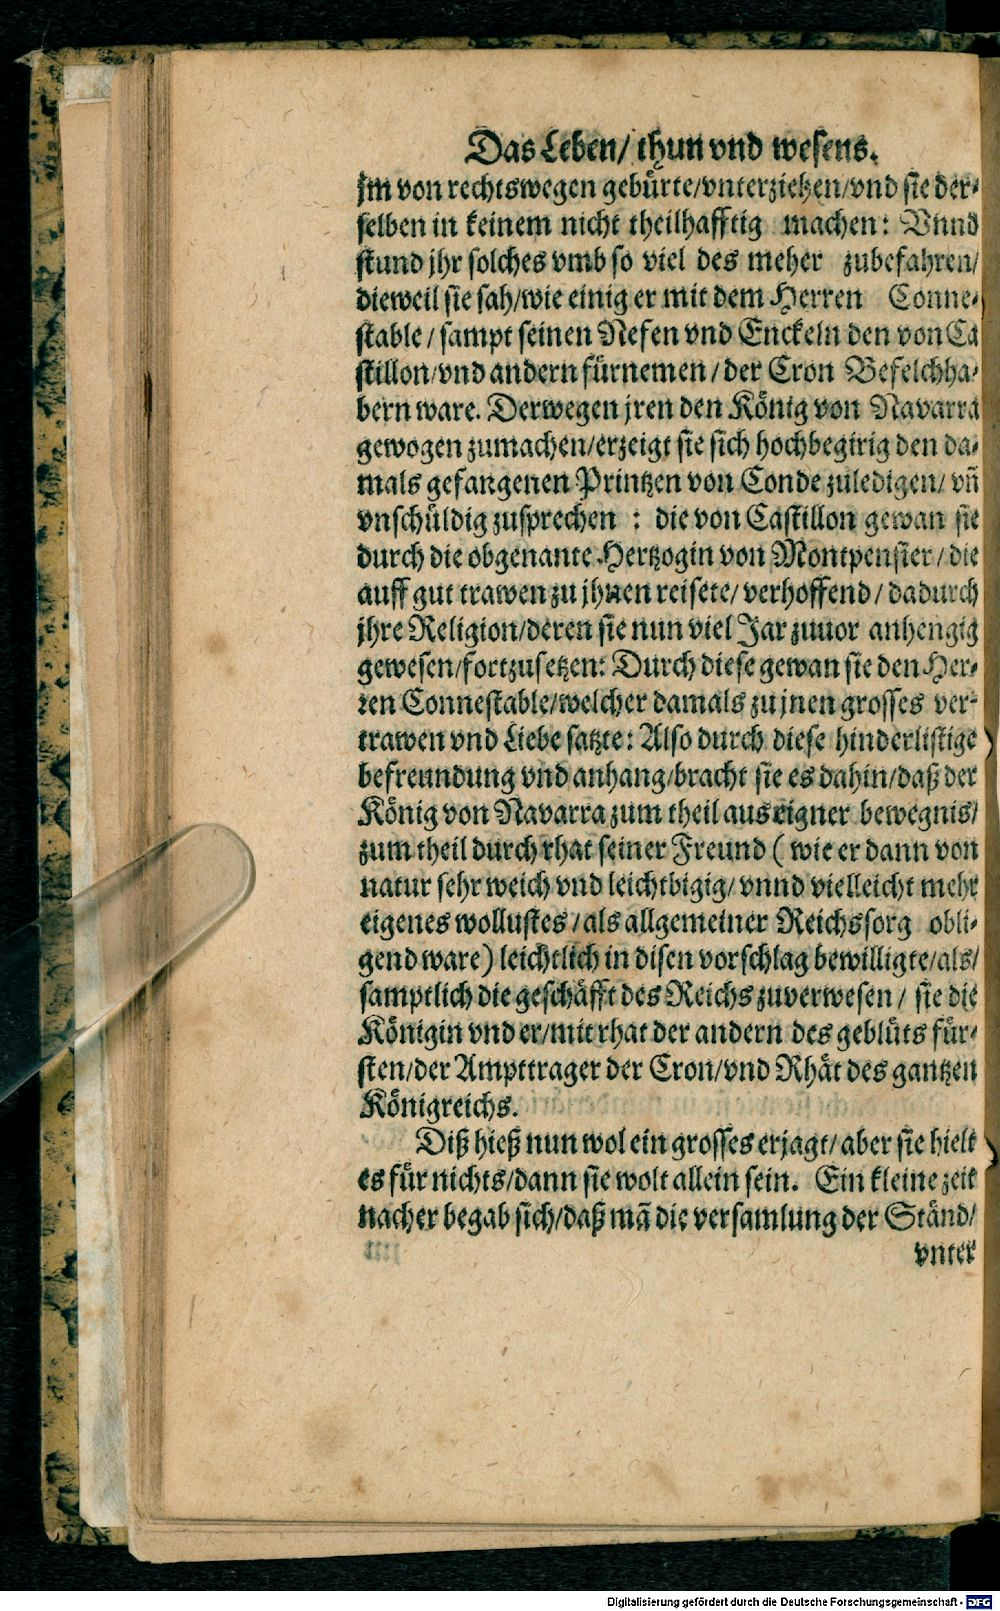 Das Leben/ thun vnd wesens.
jm von rechtswegen gebürte/vnterziehen/vnd sie der-
selben in keinem nicht theilhafftig machen: Vnnd
stund jhr solches vmb so viel des meher zubefahren/
dieweil sie sah/wie einig er mit dem Herren Conne-
stable/ sampt seinen Nefen vnd Enckeln den von Ca
stillon/vnd andern fürnemen/ der Cron Befelchha-
bern ware. Derwegen jren den König von Navarra
gewogen zumachen/erzeigt sie sich hochbegirig den da-
mals gefangenen Printzen von Conde zuledigen/ vñ
vnschüldig zusprechen : die von Castillon gewan sie
durch die obgenante Hertzogin von Montpensier/ die
auff gut trawen zu jhnen reisete/ verhoffend/ dadurch
jhre Religion/deren sie nun viel Jar zuuor anhengig
gewesen/fortzusetzen: Durch diese gewan sie den Her-
ren Connestable/welcher damals zu jnen grosses ver-
trawen vnd Liebe satzte: Also durch diese hinderlistige
befreundung vnd anhang/bracht sie es dahin/daß der
König von Navarra zum theil aus eigner bewegnis/
zum theil durch rhat seiner Freund ( wie er dann von
natur sehr weich vnd leichtbigig/ vnnd vielleicht mehr
eigenes wollustes/ als allgemeiner Reichssorg obli-
gend ware) leichtlich in disen vorschlag bewilligte/als/
samptlich die geschäfft des Reichs zuverwesen/ sie die
Königin vnd er/mit rhat der andern des geblüts für-
sten/der Ampttrager der Cron/vnd Rhät des gantzen
Königreichs.
Diß hieß nun wol ein grosses erjagt/ aber sie hielt
es für nichts/dann sie wolt allein sein. Ein kleine zeit
nacher begab sich/daß mã die versamlung der Ständ/
vnter
Digitalisierung gefördert durch die Deutsche Forschungsgemeinschaft - DFG